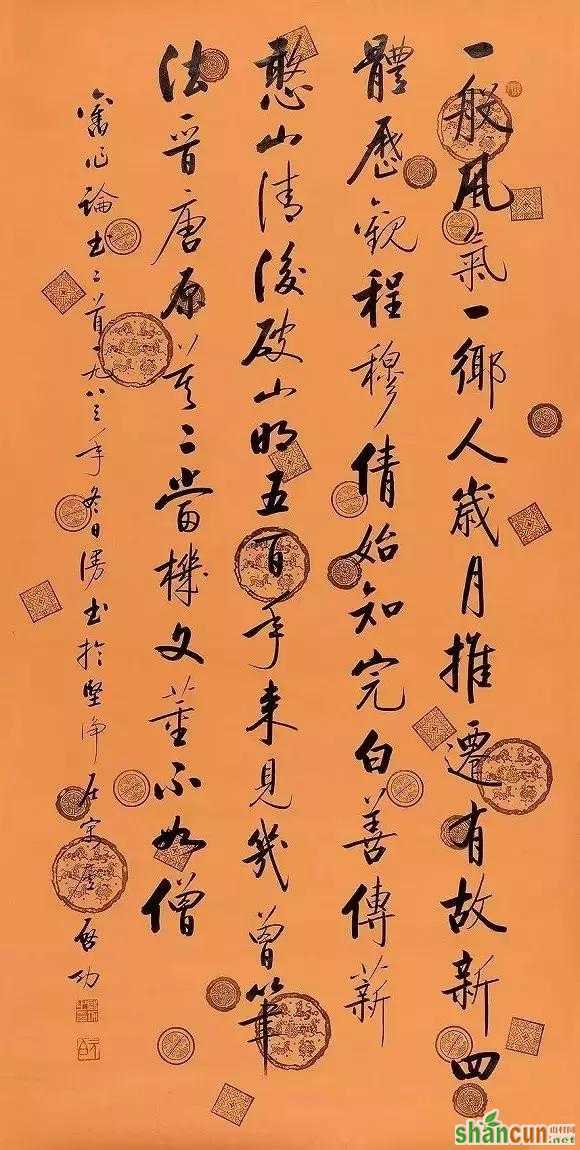 一般風氣一鄉人歲月推遷有故新四
體歷觀程穆倩始知完白善傳薪
憨山清後破山明五百年來見幾曾筆
法晉唐原莫二當機文董不如僧
舊作論書二首一九八三年冬日漫書於堅淨居寓廬 啓功
shancun
山村网
.net